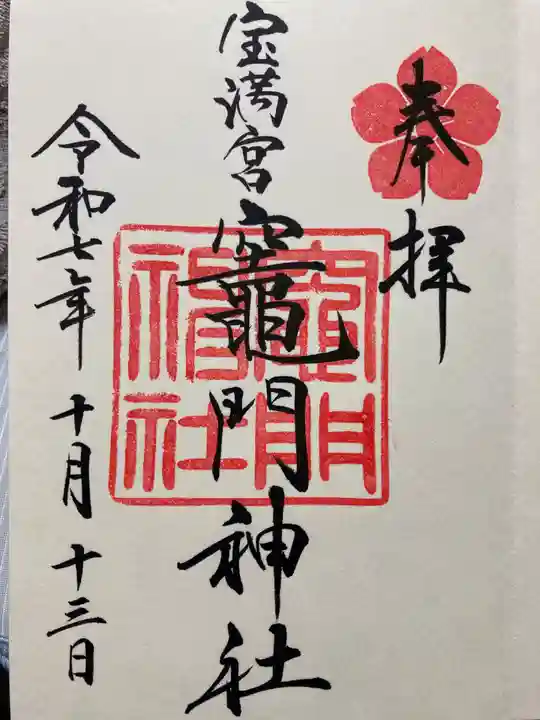 奉拝
宝満宮竈門神社
竈門神社
令和七年十月十三日